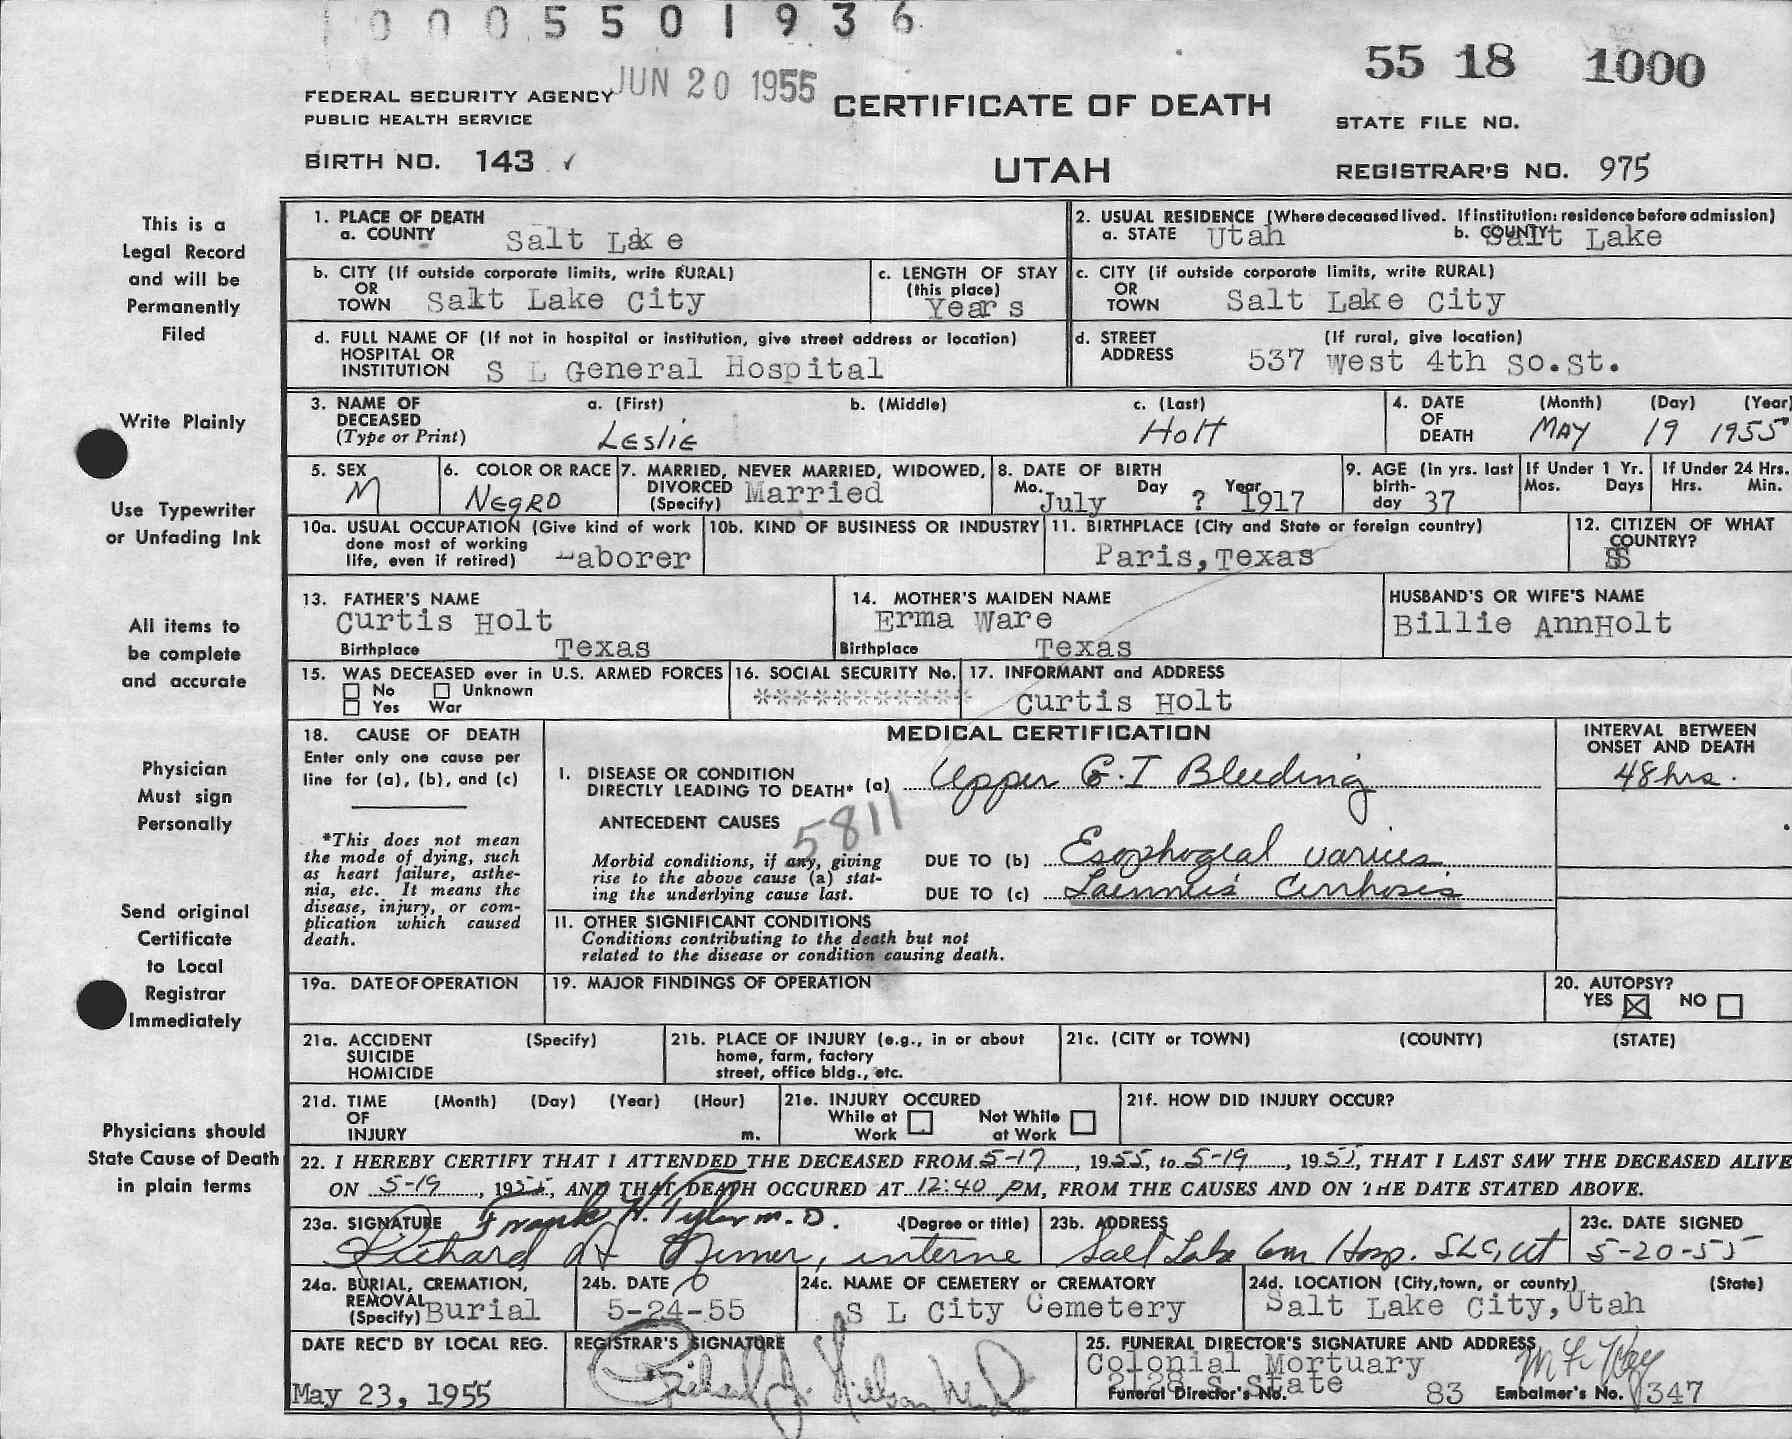 0 0 0 5 5 0 1 9 3 6
JUN 20 1955
55 18 1000
FEDERAL SECURITY AGENCY
PUBLIC HEALTH SERVICE
CERTIFICATE OF DEATH
STATE FILE NO.
BIRTH NO. 143 ✓
UTAH
REGISTRAR'S NO. 975
This is a
Legal Record
and will be
Permanently
Filed
Write Plainly
Use Typewriter
or Unfading Ink
All items to
be complete
and accurate
Physician
Must sign
Personally
Send original
Certificate
to Local
Registrar
Immediately
Physicians should
State Cause of Death
in plain terms
1. PLACE OF DEATH
a. COUNTY Salt Lake
2. USUAL RESIDENCE (Where deceased lived. If institution: residence before admission)
a. STATE Utah b. COUNTY Salt Lake
b. CITY (If outside corporate limits, write RURAL)
OR
TOWN Salt Lake City
c. LENGTH OF STAY
(this place)
Years
c. CITY (if outside corporate limits, write RURAL)
OR
TOWN Salt Lake City
d. FULL NAME OF (If not in hospital or institution, give street address or location)
HOSPITAL OR
INSTITUTION S L General Hospital
d. STREET (If rural, give location)
ADDRESS 537 West 4th So.St.
3. NAME OF a. (First) b. (Middle) c. (Last)
DECEASED
(Type or Print) Leslie Holt
4. DATE (Month) (Day) (Year)
OF
DEATH MAY 19 1955
5. SEX
M
6. COLOR OR RACE
NEGRO
7. MARRIED, NEVER MARRIED, WIDOWED,
DIVORCED Married
(Specify)
8. DATE OF BIRTH
Mo. Day Year
July ? 1917
9. AGE (in yrs. last
birth-
day 37
If Under 1 Yr.
Mos. Days
If Under 24 Hrs.
Hrs. Min.
10a. USUAL OCCUPATION (Give kind of work
done most of working
life, even if retired) Laborer
10b. KIND OF BUSINESS OR INDUSTRY
11. BIRTHPLACE (City and State or foreign country)
Paris, Texas
12. CITIZEN OF WHAT
COUNTRY?
13. FATHER'S NAME
Curtis Holt
Birthplace Texas
14. MOTHER'S MAIDEN NAME
Erma Ware
Birthplace Texas
HUSBAND'S OR WIFE'S NAME
Billie AnnHolt
15. WAS DECEASED ever in U.S. ARMED FORCES
No Unknown
Yes War
16. SOCIAL SECURITY No.
***********
17. INFORMANT and ADDRESS
Curtis Holt
18. CAUSE OF DEATH
Enter only one cause per
line for (a), (b), and (c)
*This does not mean
the mode of dying, such
as heart failure, asthe-
nia, etc. It means the
disease, injury, or com-
plication which caused
death.
MEDICAL CERTIFICATION
INTERVAL BETWEEN
ONSET AND DEATH
I. DISEASE OR CONDITION
DIRECTLY LEADING TO DEATH* (a) Upper G.I Bleeding 48 hrs.
ANTECEDENT CAUSES
5811
Morbid conditions, if any, giving
rise to the above cause (a) stat-
ing the underlying cause last.
DUE TO (b) Esophogeal varices
DUE TO (c) Laennec's Cirrhosis
II. OTHER SIGNIFICANT CONDITIONS
Conditions contributing to the death but not
related to the disease or condition causing death.
19a. DATE OF OPERATION
19. MAJOR FINDINGS OF OPERATION
20. AUTOPSY?
YES ☒ NO ☐
21a. ACCIDENT (Specify)
SUICIDE
HOMICIDE
21b. PLACE OF INJURY (e.g., in or about
home, farm, factory
street, office bldg., etc.
21c. (CITY or TOWN) (COUNTY) (STATE)
21d. TIME (Month) (Day) (Year) (Hour)
OF
INJURY m.
21e. INJURY OCCURED
While at Not While
Work at Work
21f. HOW DID INJURY OCCUR?
22. I HEREBY CERTIFY THAT I ATTENDED THE DECEASED FROM 5-17, 1955, to 5-19, 1955, THAT I LAST SAW THE DECEASED ALIVE
ON 5-19, 1955, AND THAT DEATH OCCURED AT 12:40 PM, FROM THE CAUSES AND ON THE DATE STATED ABOVE.
23a. SIGNATURE Frank H. Tyler M.D. (Degree or title)
Richard H interne
23b. ADDRESS
Salt Lake Gen Hosp. SLC, Ut
23c. DATE SIGNED
5-20-55
24a. BURIAL, CREMATION,
REMOVAL
(Specify) Burial
24b. DATE
5-24-55
24c. NAME OF CEMETERY or CREMATORY
S L City Cemetery
24d. LOCATION (City, town, or county) (State)
Salt Lake City, Utah
DATE REC'D BY LOCAL REG.
May 23, 1955
REGISTRAR'S SIGNATURE
25. FUNERAL DIRECTOR'S SIGNATURE AND ADDRESS
Colonial Mortuary
2128 S State
Funeral Director's No. 83 Embalmer's No. 347